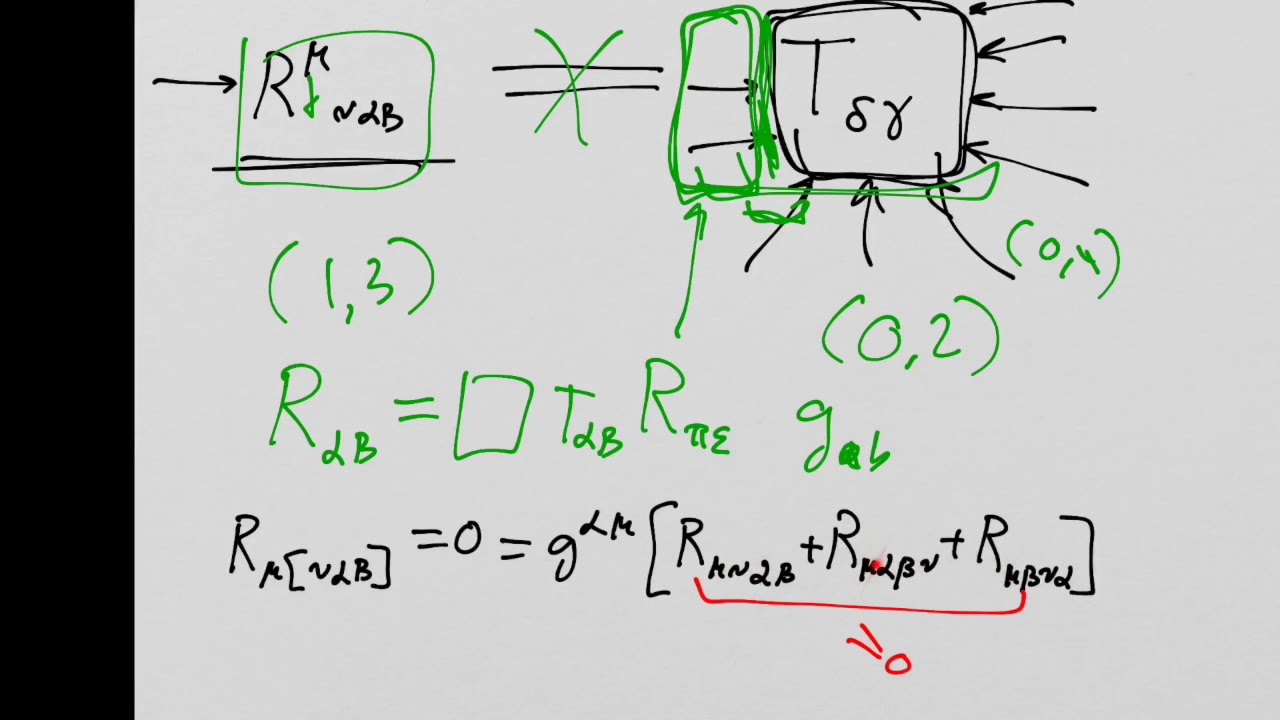 R^μ_{ναβ} ≠ T_{δγ}
(1,3) (0,4)
(0,2)
R_{αβ} = □ T_{αβ} R_{πε} g_{ab}
R_{μ[ναβ]} = 0 = g^{αμ} [R_{μναβ} + R_{μαβν} + R_{μβνα}]
0